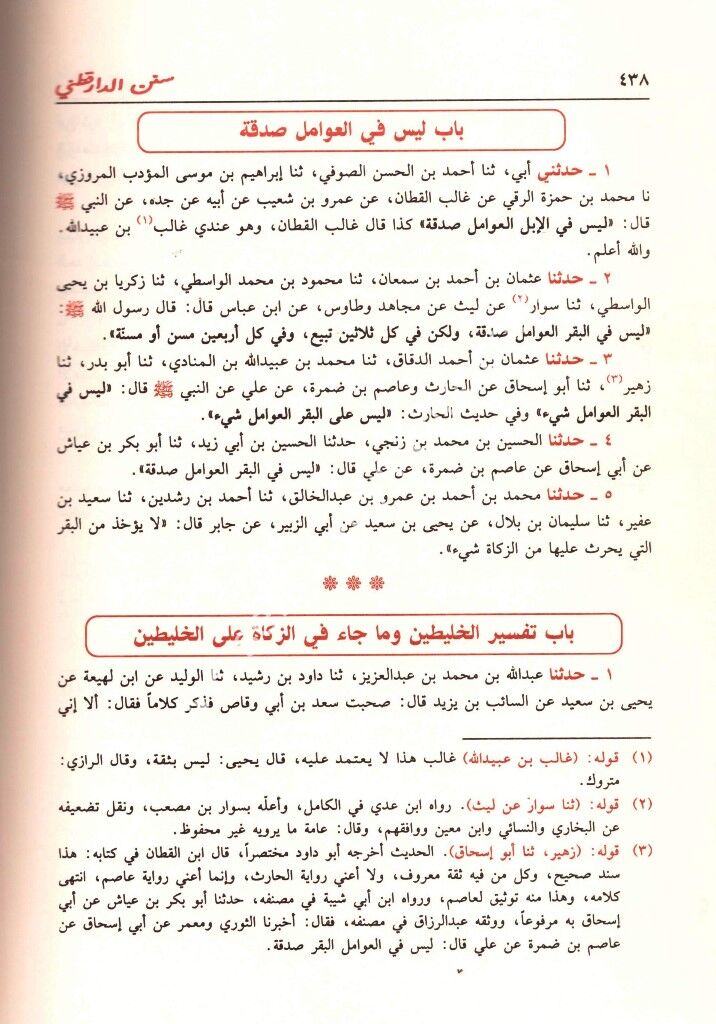 ٤٣٨
سنن الدارقطني
باب ليس في العوامل صدقة
١ ـ حدثني أبي، ثنا أحمد بن الحسن الصوفي، ثنا إبراهيم بن موسى المؤدب المروزي،
نا محمد بن حمزة الرقي عن غالب القطان، عن عمرو بن شعيب عن أبيه عن جده، عن النبي ﷺ
قال: «ليس في الإبل العوامل صدقة» كذا قال غالب القطان، وهو عندي غالب(١) بن عبيدالله.
والله أعلم.
٢ ـ حدثنا عثمان بن أحمد بن سمعان، ثنا محمود بن محمد الواسطي، ثنا زكريا بن يحيى
الواسطي، ثنا سوار(٢) عن ليث عن مجاهد وطاوس، عن ابن عباس قال: قال رسول الله ﷺ:
«ليس في البقر العوامل صدقة، ولكن في كل ثلاثين تبيع، وفي كل أربعين مسن أو مسنّة».
٣ ـ حدثنا عثمان بن أحمد الدقاق، ثنا محمد بن عبيدالله بن المنادي، ثنا أبو بدر، ثنا
زهير(٣)، ثنا أبو إسحاق عن الحارث وعاصم بن ضمرة، عن علي عن النبي ﷺ قال: «ليس في
البقر العوامل شيء» وفي حديث الحارث: «ليس على البقر العوامل شيء».
٤ ـ حدثنا الحسين بن محمد بن زنجي، حدثنا الحسين بن أبي زيد، ثنا أبو بكر بن عياش
عن أبي إسحاق عن عاصم بن ضمرة، عن علي قال: «ليس في البقر العوامل صدقة».
٥ ـ حدثنا محمد بن أحمد بن عمرو بن عبدالخالق، ثنا أحمد بن رشدين، ثنا سعيد بن
عفير، ثنا سليمان بن بلال، عن يحيى بن سعيد عن أبي الزبير، عن جابر قال: «لا يؤخذ من البقر
التي يحرث عليها من الزكاة شيء».
باب تفسير الخليطين وما جاء في الزكاة على الخليطين
١ ـ حدثنا عبدالله بن محمد بن عبدالعزيز، ثنا داود بن رشيد، ثنا الوليد عن ابن لهيعة عن
يحيى بن سعيد عن السائب بن يزيد قال: صحبت سعد بن أبي وقاص فذكر كلاماً فقال: ألا إني
(١) قوله: (غالب بن عبيدالله) غالب هذا لا يعتمد عليه، قال يحيى: ليس بثقة، وقال الرازي:
متروك.
(٢) قوله: (ثنا سوار عن ليث). رواه ابن عدي في الكامل، وأعلّه بسوار بن مصعب، ونقل تضعيفه
عن البخاري والنسائي وابن معين ووافقهم، وقال: عامة ما يرويه غير محفوظ.
(٣) قوله: (زهير، ثنا أبو إسحاق). الحديث أخرجه أبو داود مختصراً، قال ابن القطان في كتابه: هذا
سند صحيح، وكل من فيه ثقة معروف، ولا أعني رواية الحارث، وإنما أعني رواية عاصم، انتهى
كلامه، وهذا منه توثيق لعاصم، ورواه ابن أبي شيبة في مصنفه، حدثنا أبو بكر بن عياش عن أبي
إسحاق به مرفوعاً، ووثقه عبدالرزاق في مصنفه، فقال: أخبرنا الثوري ومعمر عن أبي إسحاق عن
عاصم بن ضمرة عن علي قال: ليس في العوامل البقر صدقة.